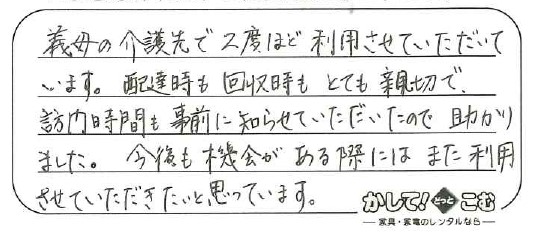 義母の介護先で2度ほど利用させていただいて
います。配達時も回収時もとても親切で、
訪門時間も事前に知らせていただいたので助かり
ました。今後も機会がある際にはまた利用
させていただきたいと思っています。
かして!どっとこむ
家具・家電のレンタルなら